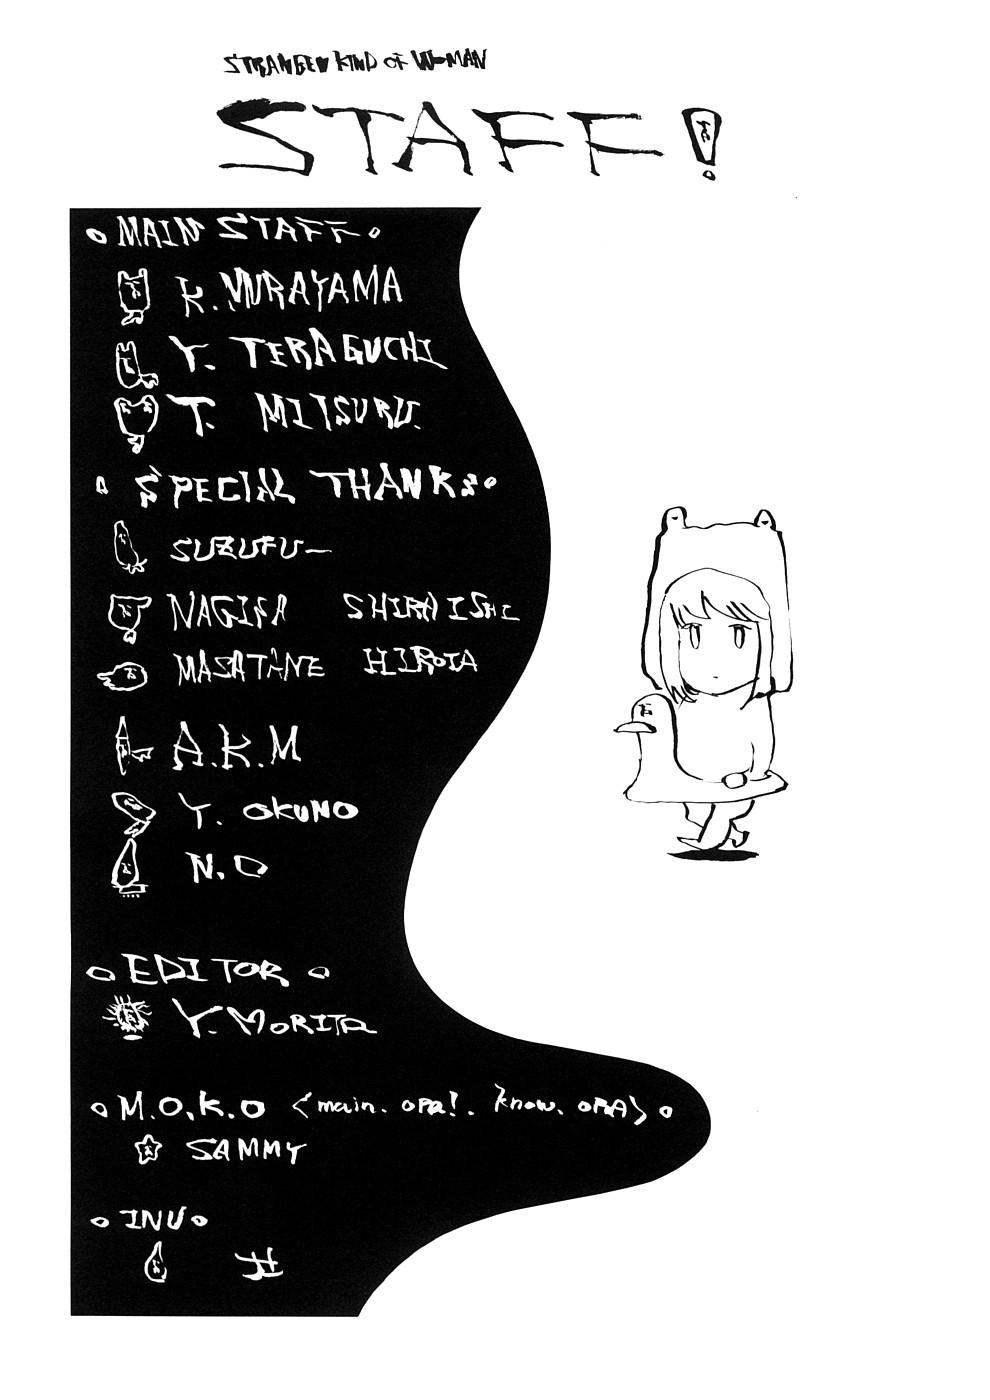 STRANGE KIND OF WOMAN
STAFF!
MAIN STAFF
K. MURAYAMA
Y. TERAGUCHI
T. MITSURU.
SPECIAL THANKS
SUZUFU—
NAGISA SHIRAISHI
MASATANE HIROTA
A.K.M
Y. OKUNO
N.O
EDITOR
Y. MORITA
M.O.K.O <main. opa!. know. OPA>
SAMMY
INU